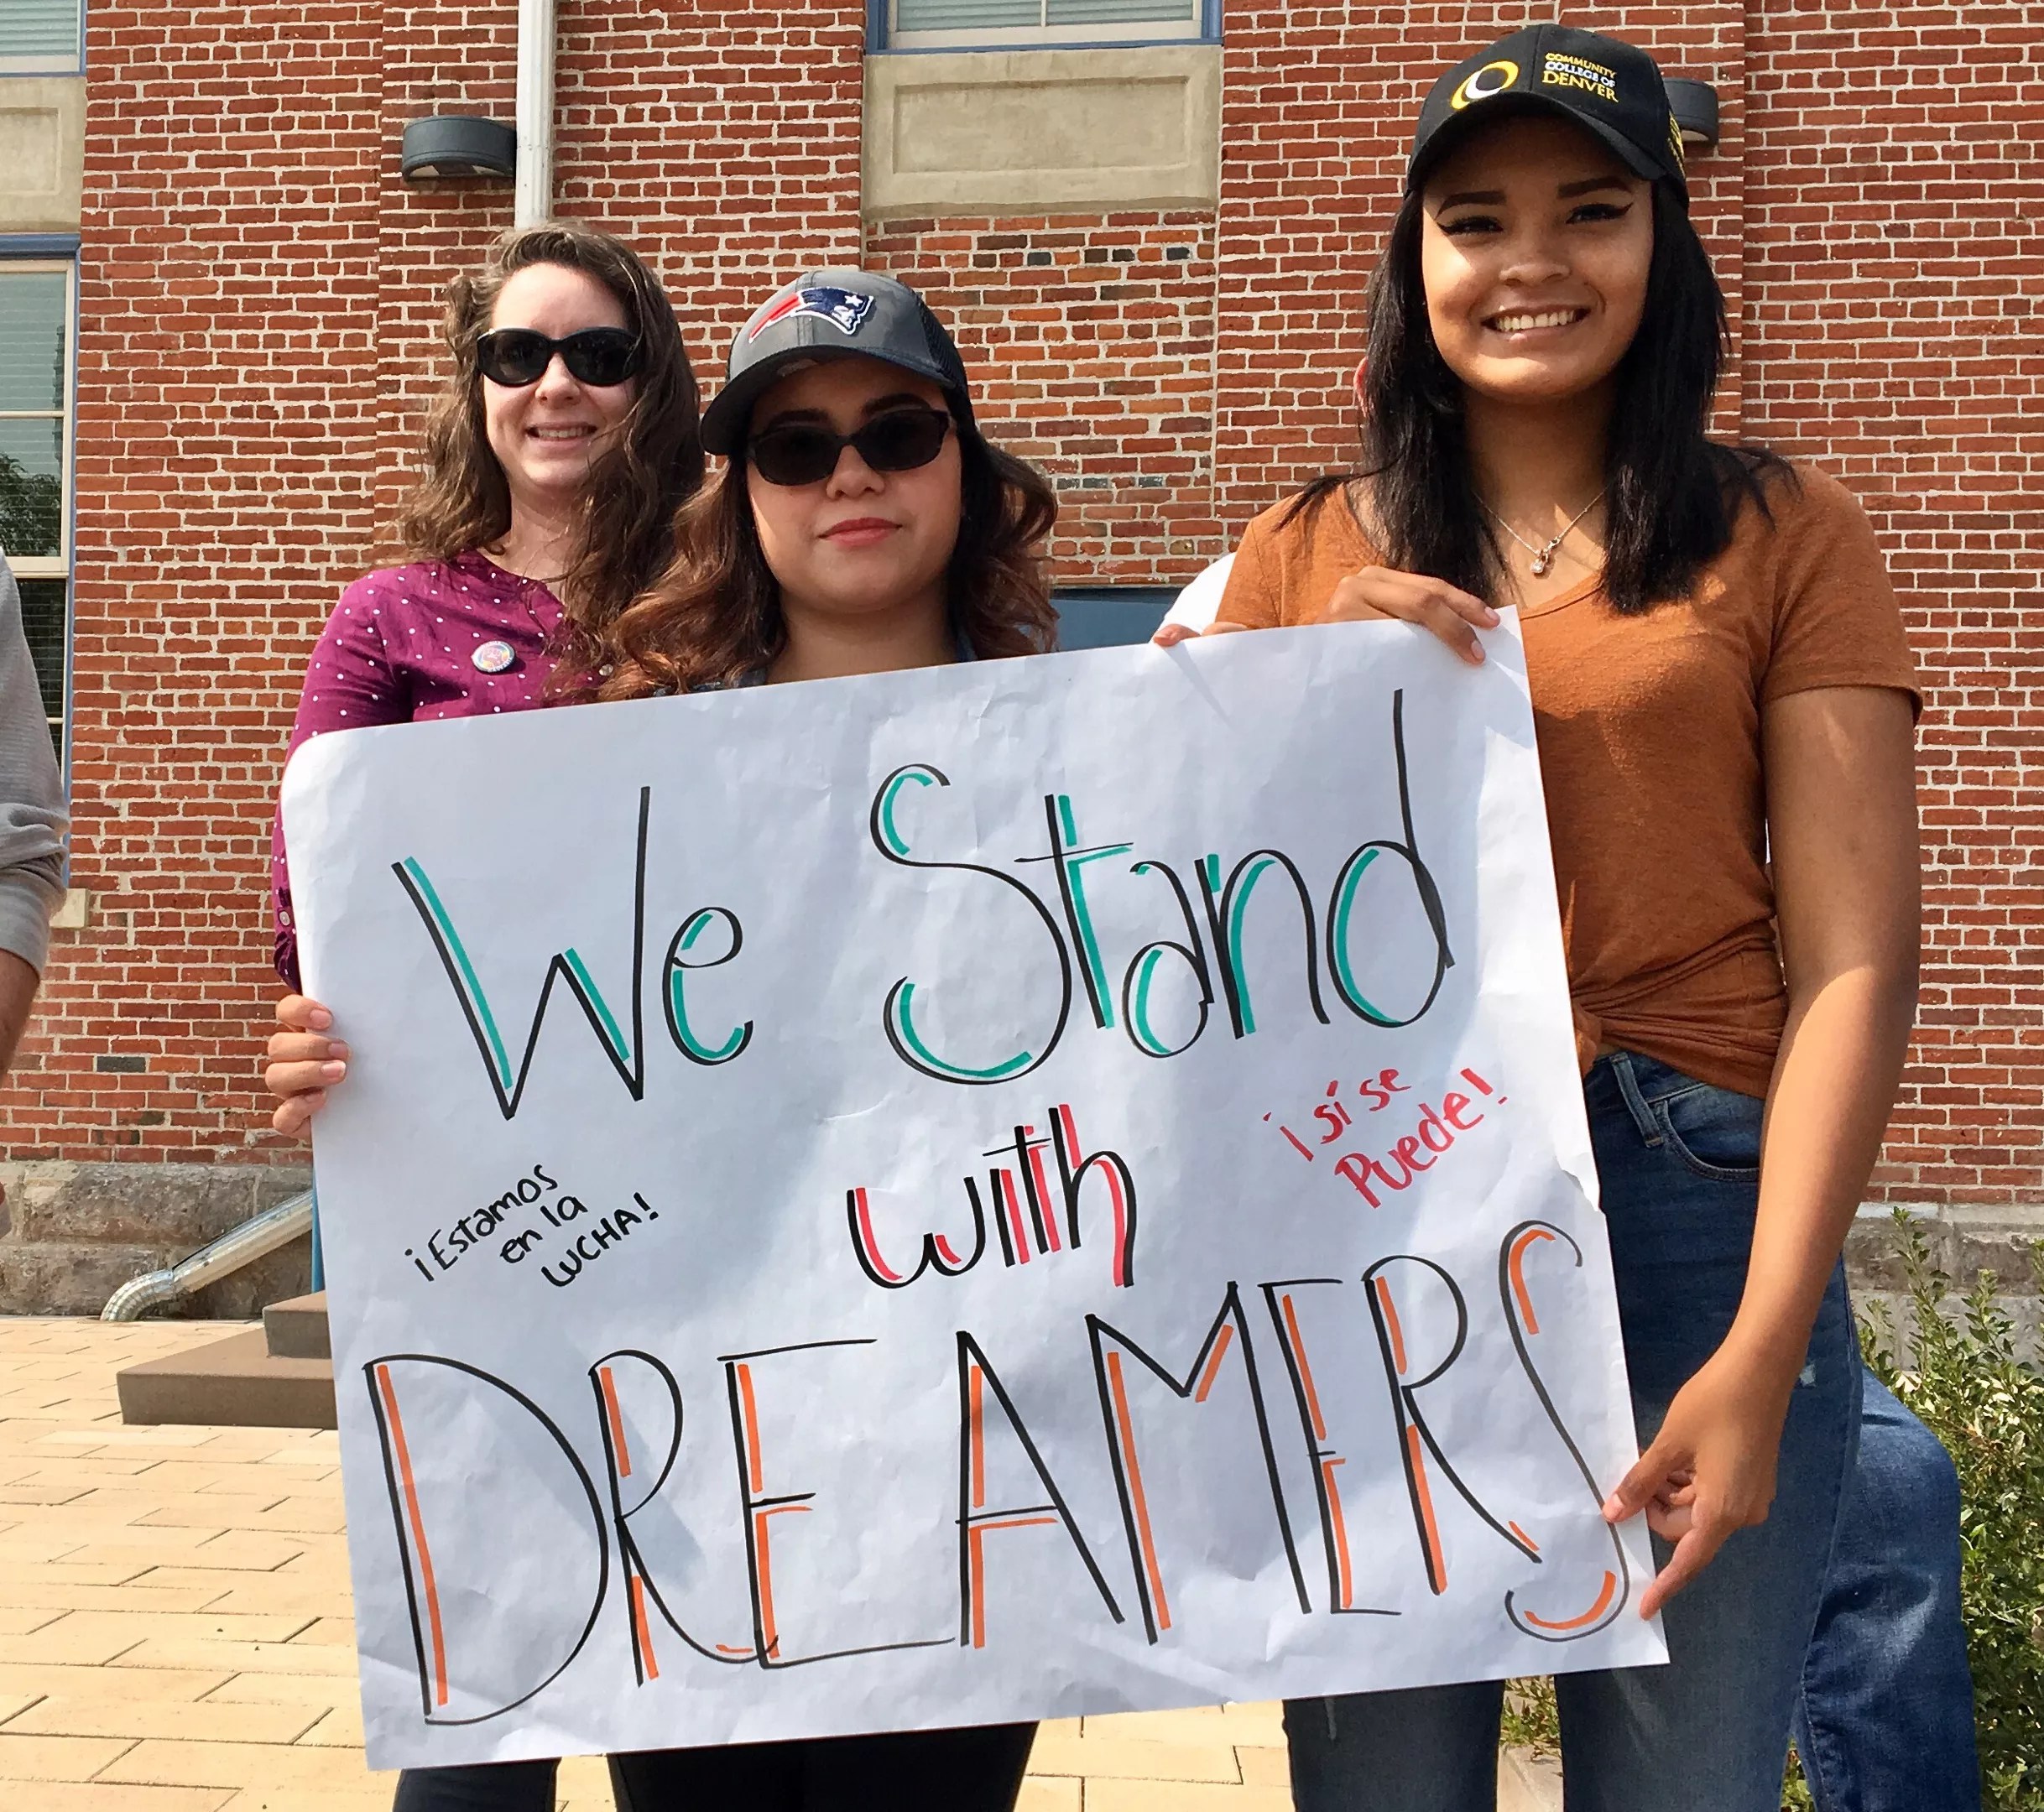 COMMUNITY
COLLEGE OF
DENVER
We Stand
¡sí se
Puede!
with
¡Estamos
en la
LUCHA!
DREAMERS